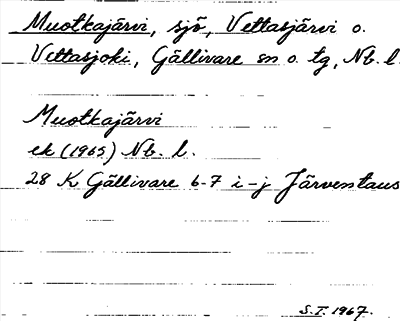 Muotkajärvi, sjö, Vettasjärvi o.
Vettasjoki, Gällivare sn o. tg, Nb. l.
Muotkajärvi
ek (1965) Nb. l.
28 K Gällivare 6-7 i-j Järvenstaus
S.I. 1967.